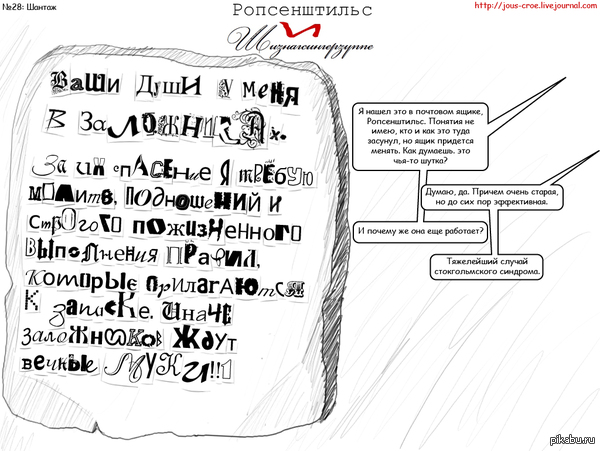 №28: Шантаж
Ропсенштильс
http://jous-croe.livejournal.com
И
Шизнагсингерзуппе
Ваши Души у меня
В Заложниках.
За их спасение я требую
молитв, подношений и
строгого пожизненного
выполнения Правил,
которые прилагаются
к записке. Иначе
заложников ждут
вечные муки!!1
Я нашел это в почтовом ящике,
Ропсенштильс. Понятия не
имею, кто и как это туда
засунул, но ящик придется
менять. Как думаешь. это
чья-то шутка?
Думаю, да. Причем очень старая,
но до сих пор эффективная.
И почему же она еще работает?
Тяжелейший случай
стокгольмского синдрома.
pikabu.ru